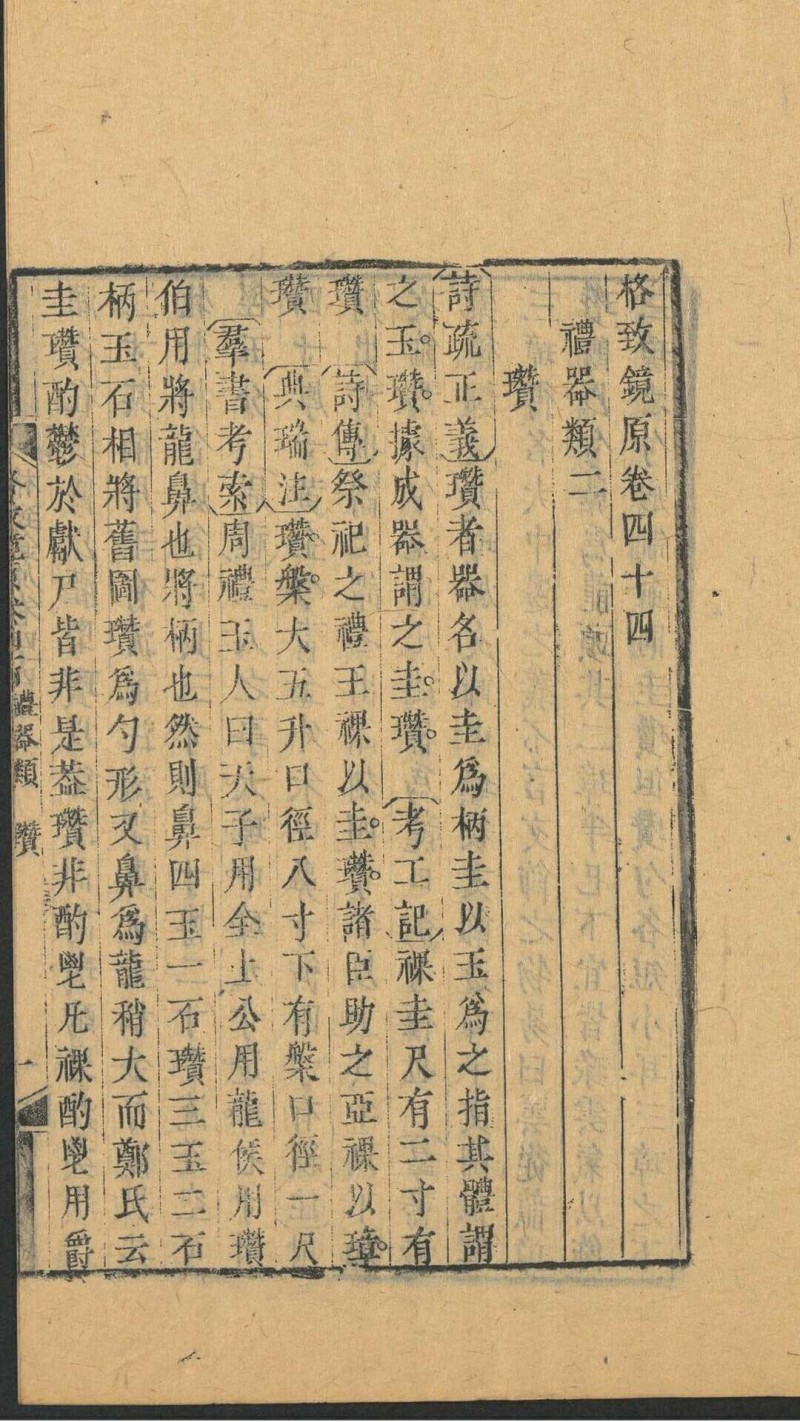 格致鏡原卷四十四
禮器類二
瓚
詩疏正義瓚者器名以圭爲柄圭以玉爲之指其體謂
之玉瓚據成器謂之圭瓚 考工記祼圭尺有二寸有
瓚 詩傳祭祀之禮王祼以圭瓚諸臣助之亞祼以璋
瓚 典瑞注瓚槃大五升口徑八寸下有槃口徑一尺
羣書考索周禮玉人曰天子用全上公用龍侯用瓚
伯用將龍鼻也將柄也然則鼻四玉一石瓚三玉二石
柄玉石相將舊圖瓚爲勺形又鼻爲龍稍大而鄭氏云
圭瓚酌鬱於獻尸皆非是葢瓚非酌鬯凡祼酌鬯用爵
禮器類 瓚 一